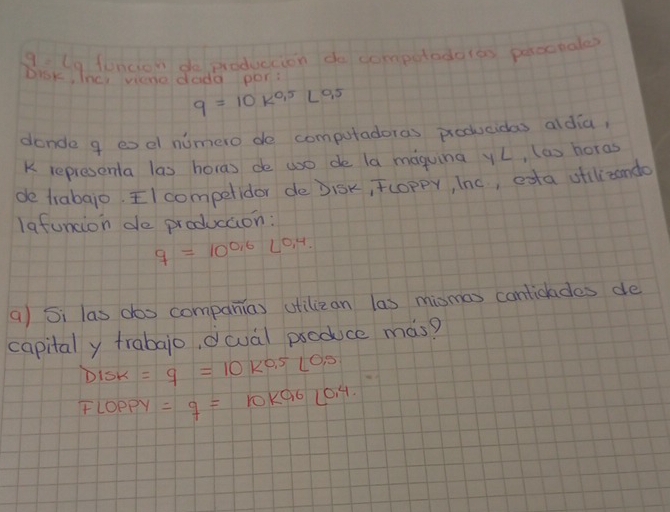 9. La función de producción de computadoras personales
DISK, Inc, viene dada por:
q = 10 K^0,5 L^0,5
donde q es el número de computadoras producidas al día,
K representa las horas de uso de la máquina y L, las horas
de trabajo. El competidor de DISK, FLOPPY, Inc, esta utilizando
la función de producción:
q = 10^0,6 L^0,4.
a) Si las dos compañías utilizan las mismas cantidades de
capital y trabajo, ¿cuál produce más?
DISK = q = 10 K^0,5 L^0,5
FLOPPY = q = 10K^0,6 L^0,4.